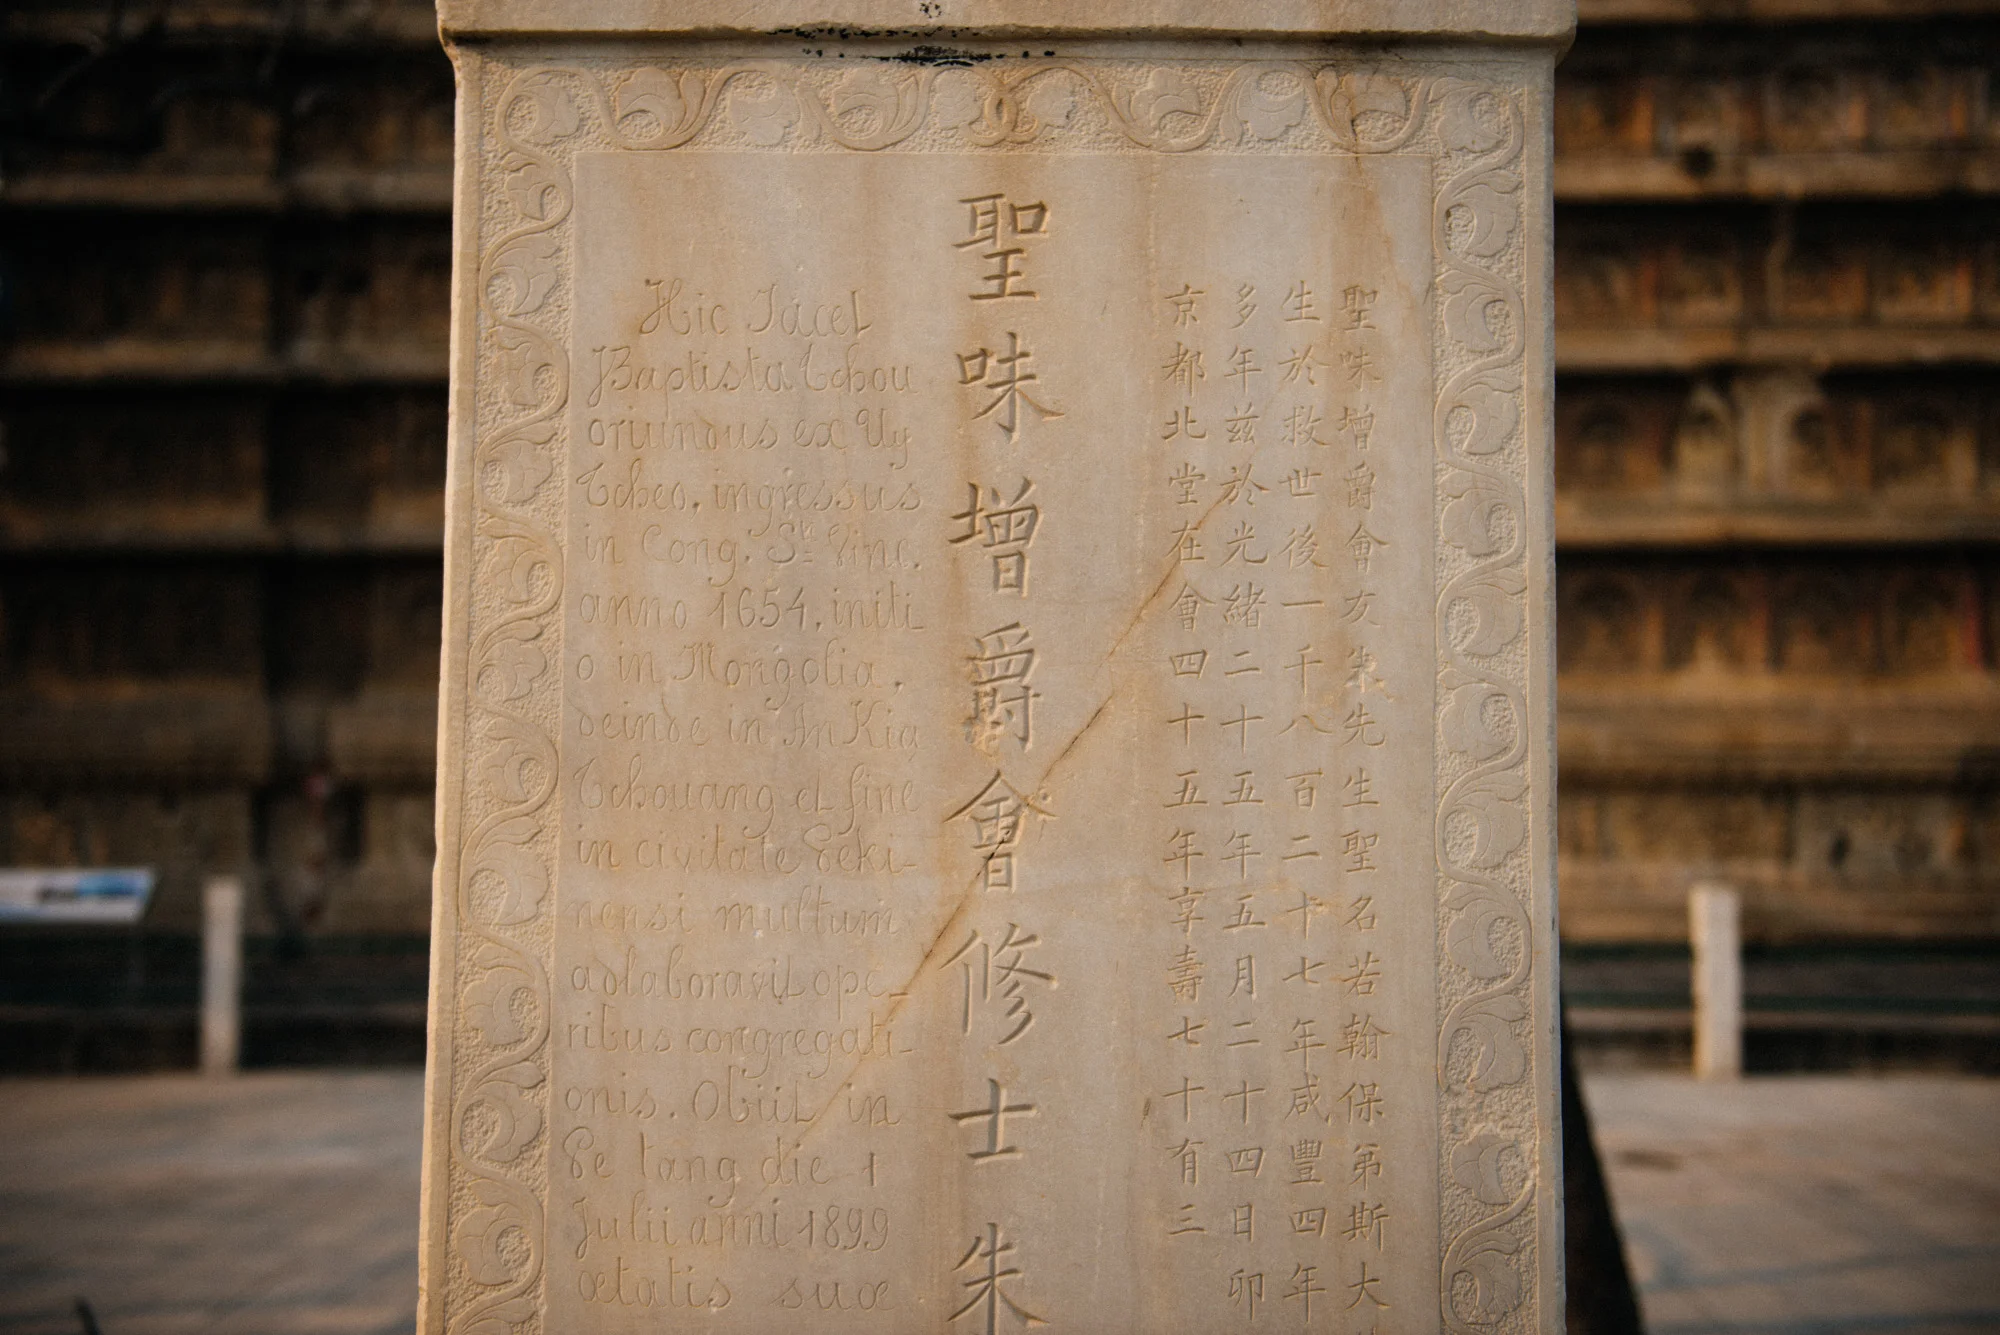 聖味增爵會友朱先生聖名若翰保弟斯大
生於救世後一千八百二十七年咸豐四年
多年兹於光緒二十五年五月二十四日卯
京都北堂在會四十五年享壽七十有三
聖味增爵會修士朱
Hic Jacet
Baptista Tchou
oriundus ex Uy
Tcheo, ingressus
in Cong. Sti Vinc.
anno 1654, initi
o in Mongolia,
deinde in An Kia
Tchouang et fine
in civitate Peki-
nensi multum
adlaboravit ope-
ribus congregati-
onis. Obiit in
Pe tang die 1
Julii anni 1899
ætatis suæ